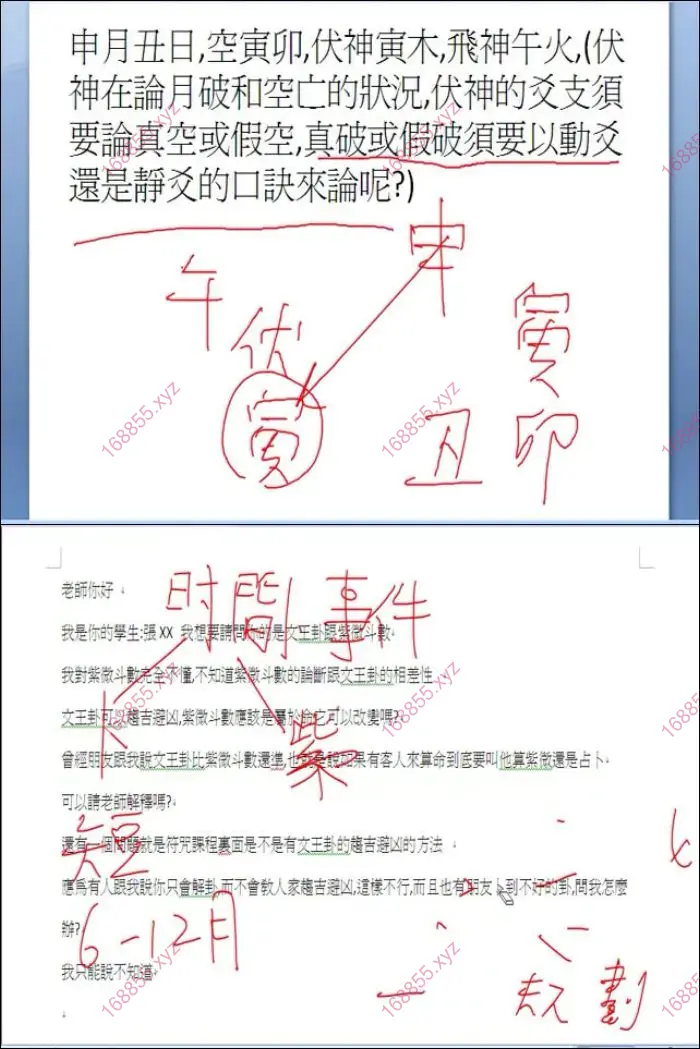 申月丑日,空寅卯,伏神寅木,飛神午火,(伏
神在論月破和空亡的狀況,伏神的爻支須
要論真空或假空,真破或假破須要以動爻
還是靜爻的口訣來論呢?)
申
午
伏
寅
寅
丑 卯
老師你好
时間 事件
我是你的學生:張XX 我想要請問你的是文王卦跟紫微斗數
我對紫微斗數完全不懂,不知道紫微斗數的論斷跟文王卦的相差性
文王卦可以趨吉避凶,紫微斗數應該是屬於命它可以改變嗎?
卜
紫
曾經朋友跟我說文王卦比紫微斗數還準,也就是說如果有客人來算命到底要叫他算紫微還是占卜
可以請老師解釋嗎?
短
還有一個問題就是符咒課程裏面是不是有文王卦的趨吉避凶的方法
應為有人跟我說你只會解卦,而不會教人家趨吉避凶,這樣不行,而且也有朋友卜到不好的卦,問我怎麼
辦?
6-12月
我只能說不知道
規劃
168855.xyz
168855.xyz
168855.xyz
168855.xyz
168855.xyz
168855.xyz
168855.xyz
168855.xyz
168855.xyz
168855.xyz